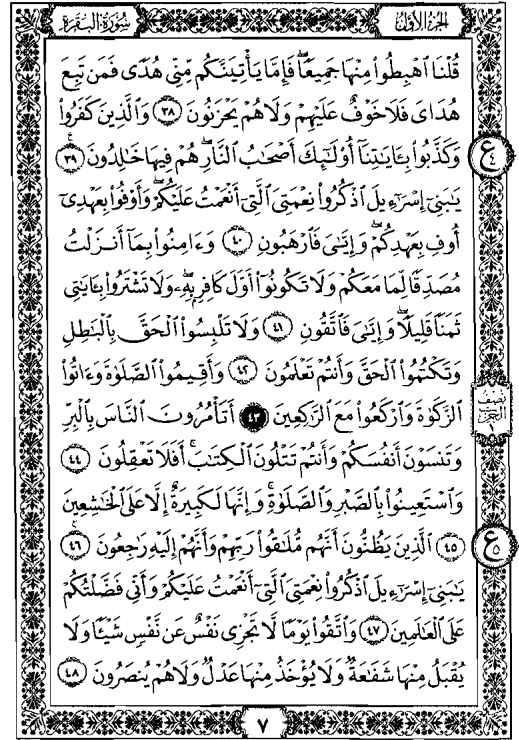 الجزء الأول
سورة البقرة
قُلْنَا ٱهْبِطُوا۟ مِنْهَا جَمِيعًاۖ فَإِمَّا يَأْتِيَنَّكُم مِّنِّى هُدًى فَمَن تَبِعَ
هُدَاىَ فَلَا خَوْفٌ عَلَيْهِمْ وَلَا هُمْ يَحْزَنُونَ ٣٨ وَٱلَّذِينَ كَفَرُوا۟
وَكَذَّبُوا۟ بِـَٔايَـٰتِنَآ أُو۟لَـٰٓئِكَ أَصْحَـٰبُ ٱلنَّارِۖ هُمْ فِيهَا خَـٰلِدُونَ ٣٩
ع ٤
يَـٰبَنِىٓ إِسْرَٰٓءِيلَ ٱذْكُرُوا۟ نِعْمَتِىَ ٱلَّتِىٓ أَنْعَمْتُ عَلَيْكُمْ وَأَوْفُوا۟ بِعَهْدِىٓ
أُوفِ بِعَهْدِكُمْۖ وَإِيَّـٰىَ فَٱرْهَبُونِ ٤٠ وَءَامِنُوا۟ بِمَآ أَنزَلْتُ
مُصَدِّقًا لِّمَا مَعَكُمْ وَلَا تَكُونُوٓا۟ أَوَّلَ كَافِرٍۭ بِهِۦۖ وَلَا تَشْتَرُوا۟ بِـَٔايَـٰتِى
ثَمَنًا قَلِيلًاۖ وَإِيَّـٰىَ فَٱتَّقُونِ ٤١ وَلَا تَلْبِسُوا۟ ٱلْحَقَّ بِٱلْبَـٰطِلِ
وَتَكْتُمُوا۟ ٱلْحَقَّ وَأَنتُمْ تَعْلَمُونَ ٤٢ وَأَقِيمُوا۟ ٱلصَّلَوٰةَ وَءَاتُوا۟
ٱلزَّكَوٰةَ وَٱرْكَعُوا۟ مَعَ ٱلرَّٰكِعِينَ ٤٣ أَتَأْمُرُونَ ٱلنَّاسَ بِٱلْبِرِّ
نصف
الحزب
١
وَتَنسَوْنَ أَنفُسَكُمْ وَأَنتُمْ تَتْلُونَ ٱلْكِتَـٰبَۚ أَفَلَا تَعْقِلُونَ ٤٤
وَٱسْتَعِينُوا۟ بِٱلصَّبْرِ وَٱلصَّلَوٰةِۚ وَإِنَّهَا لَكَبِيرَةٌ إِلَّا عَلَى ٱلْخَـٰشِعِينَ
٤٥ ٱلَّذِينَ يَظُنُّونَ أَنَّهُم مُّلَـٰقُوا۟ رَبِّهِمْ وَأَنَّهُمْ إِلَيْهِ رَٰجِعُونَ ٤٦
ع ٥
يَـٰبَنِىٓ إِسْرَٰٓءِيلَ ٱذْكُرُوا۟ نِعْمَتِىَ ٱلَّتِىٓ أَنْعَمْتُ عَلَيْكُمْ وَأَنِّى فَضَّلْتُكُمْ
عَلَى ٱلْعَـٰلَمِينَ ٤٧ وَٱتَّقُوا۟ يَوْمًا لَّا تَجْزِى نَفْسٌ عَن نَّفْسٍ شَيْـًٔا وَلَا
يُقْبَلُ مِنْهَا شَفَـٰعَةٌ وَلَا يُؤْخَذُ مِنْهَا عَدْلٌ وَلَا هُمْ يُنصَرُونَ ٤٨
٧